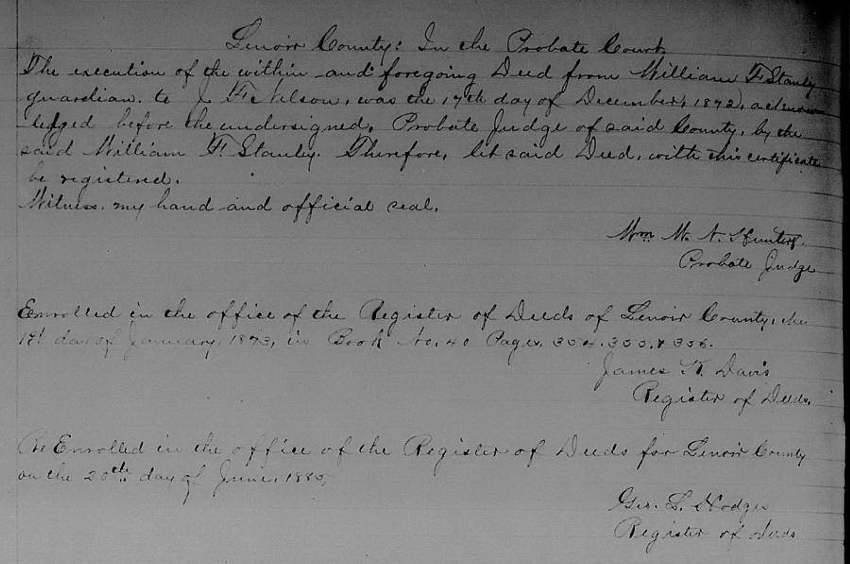 Lenoir County: In the Probate Court
The execution of the within and foregoing Deed from William F. Stanly
guardian. to J. F. Nelson, was the 17th day of December, 1872, acknow
ledged before the undersigned, Probate Judge of said County, by the
said William F. Stanley. Therefore, let said Deed, with this certificate
be registered.
Witness. my hand and official seal.
Wm W. N. Hunter.
Probate Judge
Enrolled in the office of the Register of Deeds of Lenoir County, the
day of January, 1873, in Book No. 40 Pages, 354, 355, & 356.
James K. Davis
Register of Deeds.
Re Enrolled in the office of the Register of Deeds for Lenoir County
on the 20th day of June, 1880,
Geo. L. Hodges
Register of Deeds